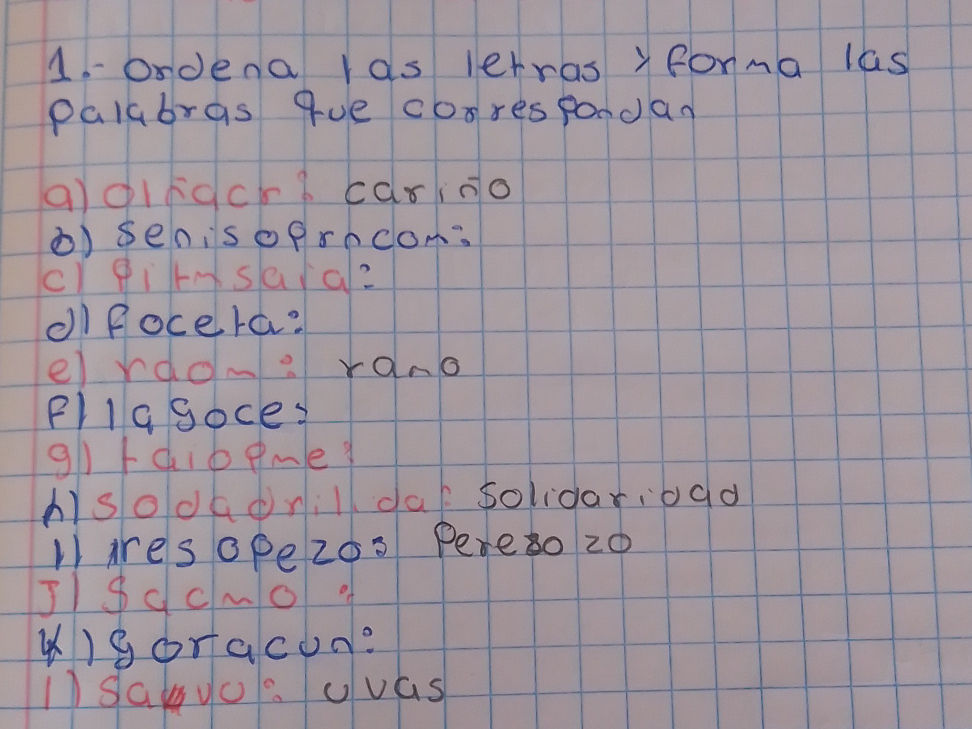 1.- ordena las letras y forma las
palabras que correspondan
a) oiñacr: cariño
b) senisoprncom:
c) pitmsaia:
d) foceta:
e) raom: ramo
f) lagoce:
g) taiopme:
h) sodadrilida: solidaridad
i) resopezo: Perezozo
J) Sacmo:
k) goracun:
l) savu: uvas